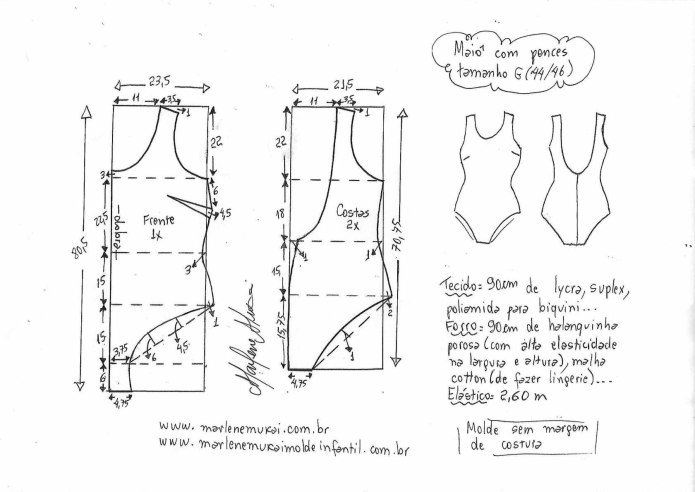 Maiô com pences
tamanho G (44/46)
23,5
11
3,5
1
22
3
6
4,5
22,5
dobra
Frente
1x
80,5
3
15
1
15
3,75
6
4,5
6
4,75
21,5
11
3,5
1
22
18
Costas
2x
70,75
1
1
15
2
15,75
1
4,75
Marlene Mukai
Tecido= 90cm de lycra, suplex,
poliamida para biquini...
Forro= 90cm de helanquinha
porosa (com alta elasticidade
na largura e altura), malha
cotton (de fazer lingerie)...
Elástico= 2,60 m
Molde sem margem
de costura
www.marlenemukai.com.br
www.marlenemukaimoldeinfantil.com.br